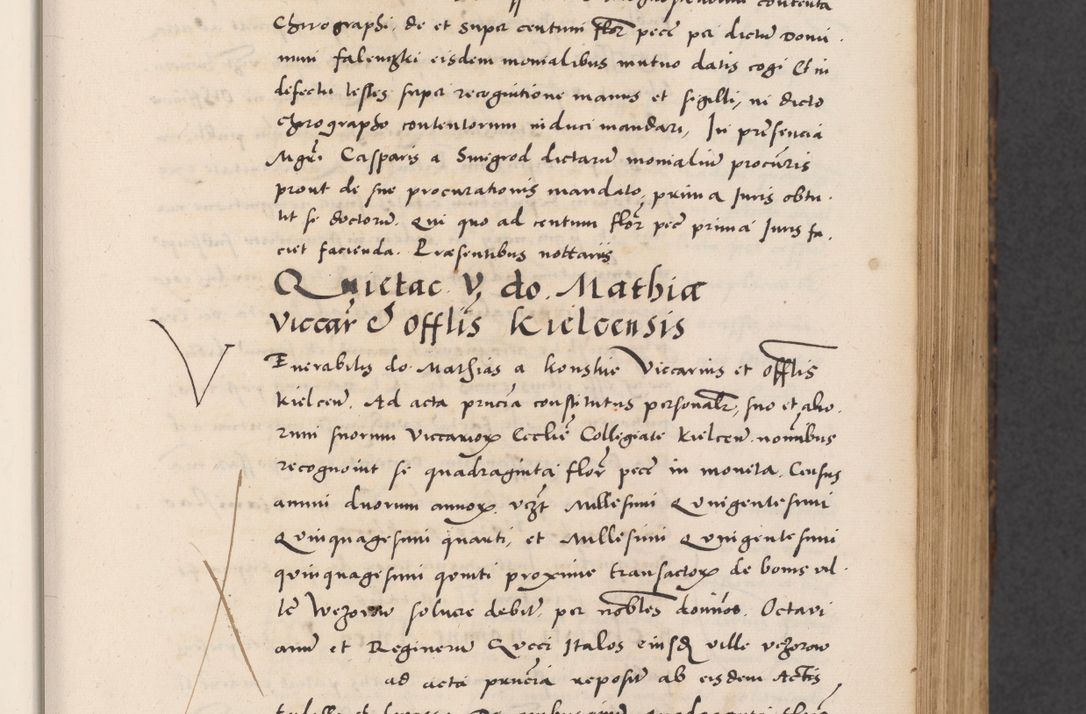 Chirographi, de et super centum flor pecc per dictum Domi
num falenczki eisdem monialibus mutuo datis cogi Et in
defectu testes super recognitione manus et sigilli, in dicto
chirographo contentorum induci mandari, In presencia
Mgri Casparis a Smigrod dictarum monialium procuris
prout de sue procurationis mandato, prima Juris obtu
lit se docturum. Qui quo ad centum flor pecc prima Juris fa
ciet facienda. Praesentibus nottariis
Quietac V, do. Mathiae
viccar et offlis Kielcensis
Venerabilis do Mathias a konskie Viccarius et offlis
kielcen. Ad acta pncia constitutus personalr, suo et alio
rum suorum viccariorum Ecclie Collegiate kielcen nominibus
recognoint se quadraginta flor pecc in moneta. Census
annui duorum annorum vczt Millesimi Quingentesimi
Quinquagesimi quarti, et Millesimi Quingentesimi
quinquagesimi quinti proxime transactorum de bonis vil
le Wezorow soluere debit. per nobles dominos. Octavi
anum et Reginerum Qucci Italos eiusdem ville vezorow
ad acta pnncia reposit ab eisdem Actis